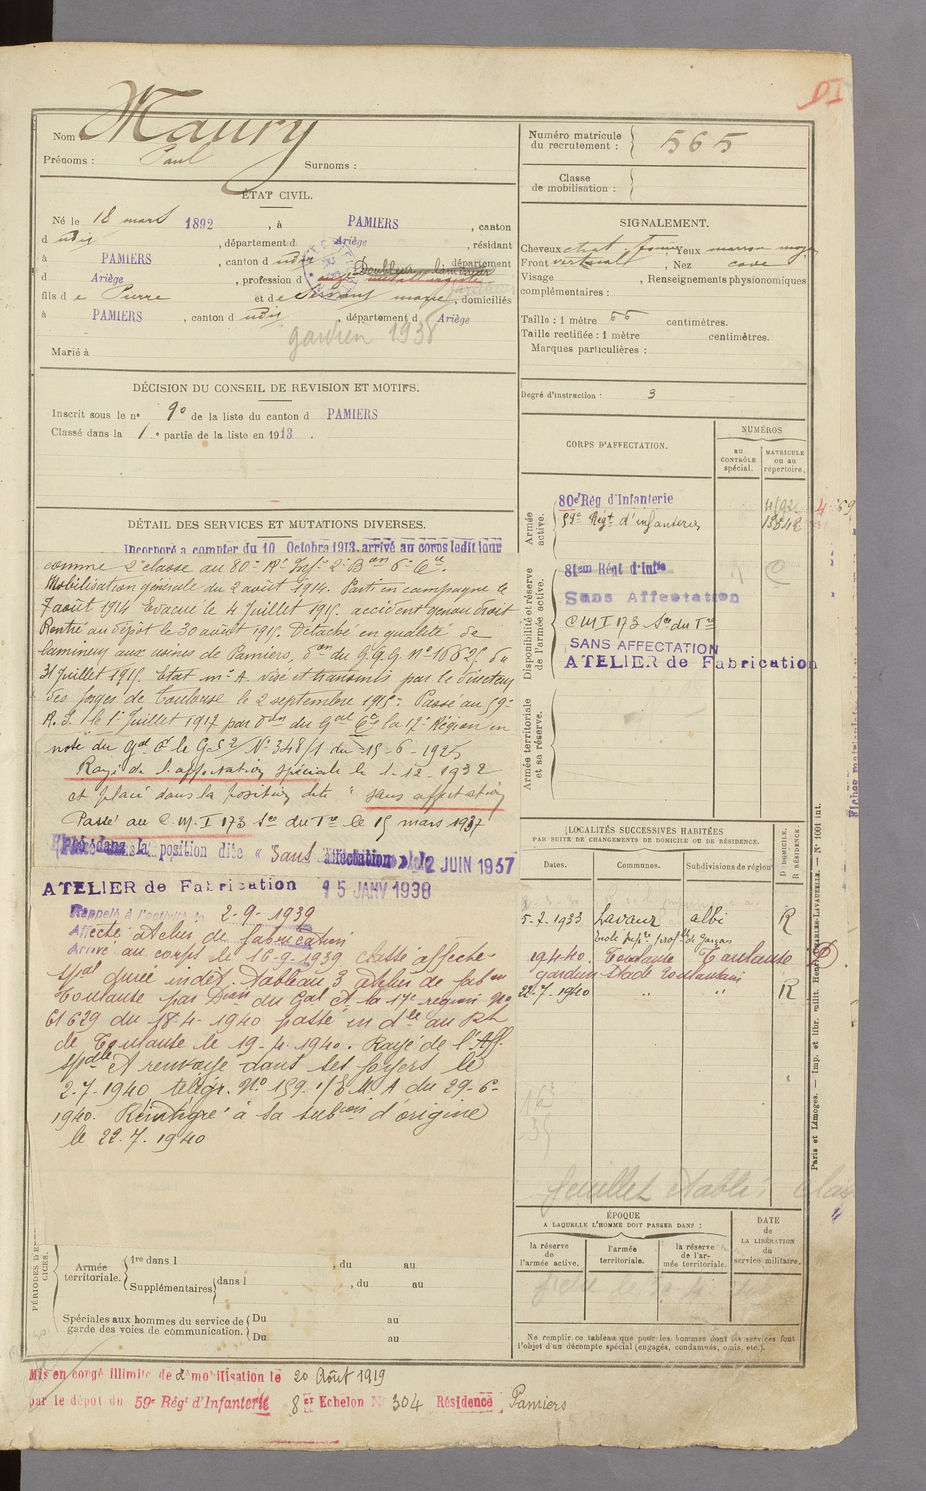 DI
Nom Maury
Prénoms : Paul Surnoms :
ÉTAT CIVIL.
Né le 18 mars 1892, à PAMIERS, canton
d udit, département d Ariège, résidant
à PAMIERS, canton d udit département
Doubleur lamineur
d Ariège, profession d
fils d e Pierre et de Servant marie, domiciliés
à PAMIERS, canton d udit, département d Ariège
gardien 1938
Marié à
DÉCISION DU CONSEIL DE REVISION ET MOTIFS.
Inscrit sous le n° 90 de la liste du canton d PAMIERS
Classé dans la 1e partie de la liste en 1913.
DÉTAIL DES SERVICES ET MUTATIONS DIVERSES.
Incorporé a compter du 10 Octobre 1913. arrivé au corps ledit jour
comme 2e classe au 80e Rt Infie 2e Bon 6e Cie.
Mobilisation générale du 2 août 1914. Parti en campagne le
7 août 1914 Evacué le 4 Juillet 1915. accident genou droit
Rentré au dépôt le 30 août 1915. Détaché en qualité de
lamineur aux usines de Pamiers, don du G.Q.G. No 16625 du
31 Juillet 1915. Etat mle A. visé et transmis par le Directeur
des forges de Toulouse le 2 septembre 1915. Passé au 59e
R.I. le 1er Juillet 1917 par don du Gal Ct la 17e Région en
note du gal Ct le G.S 2 No 348/1 du 15-6-1925
Rayé de l'affectation spéciale le 1-12-1932
et placé dans la position dite "sans affectation
Passé au C.M.I 173 Son du Tn le 15 mars 1937
Placé dans la position dite « Sans affectation » le 2 JUIN 1937
ATELIER de Fabrication 15 JANV 1938
Rappelé à l'activité le 2-9-1939
Affecté atelier de fabrication
Arrivé au corps le 16-9-1939 classé affecté
spal durée indét. tableau 3 atelier de fabon
Toulouse par Dion du Gal Ct la 17e région No
61629 du 18-4-1940 passé in dle au Rt
de Toulouse le 19-4-1940. Rayé de l'Aff.
spale et renvoyé dans ses foyers le
2-7-1940 télégr. No 159. 1/EMA du 29-6-
1940. Réintégré à sa subon d'origine
le 22.7.1940
PÉRIODES D'EXERCICES.
Armée territoriale. 1re dans l, du au
Supplémentaires dans l, du au
Spéciales aux hommes du service de garde des voies de communication. Du au
Du au
Mis en congé Illimité de démobilisation le 20 Août 1919
par le dépot du 59e Régt d'Infanterie 8er Echelon N° 304 Résidence Pamiers
Numéro matricule du recrutement : 565
Classe de mobilisation :
SIGNALEMENT.
Cheveux chat. foncé Yeux marron moyen
Front vertical, Nez cave
Visage, Renseignements physionomiques
complémentaires :
Taille : 1 mètre 66 centimètres.
Taille rectifiée : 1 mètre centimètres.
Marques particulières :
Degré d'instruction : 3
CORPS D'AFFECTATION.
NUMÉROS
au CONTRÔLE spécial.
MATRICULE ou au répertoire.
Armée active.
80e Rég d'Infanterie
59e Régt d'infanterie
Disponibilité et réserve de l'armée active.
81em Régt d'Infie
Sans Affectation
CMI 173 Son du Tn
SANS AFFECTATION
ATELIER de Fabrication
Armée territoriale et sa réserve.
LOCALITÉS SUCCESSIVES HABITÉES
PAR SUITE DE CHANGEMENTS DE DOMICILE OU DE RÉSIDENCE.
Dates. Communes. Subdivisions de région
D DOMICILE, R RÉSIDENCE.
5-7-1933 Lavaur albi R
Ecole supre profle de garçons
19-4-40. Toulouse Toulouse D
gardien Stade toulousain
22-7-1940 " " R
feuillet établi
ÉPOQUE
A LAQUELLE L'HOMME DOIT PASSER DANS :
la réserve de l'armée active.
l'armée territoriale.
la réserve de l'armée territoriale.
DATE de LA LIBÉRATION du service militaire.
Ne remplir ce tableau que pour les hommes dont les services font
l'objet d'un décompte spécial (engagés, condamnés, omis, etc.).
Paris et Limoges. — Imp. et libr. milit. Henri CHARLES-LAVAUZELLE. — N° 1001 int.